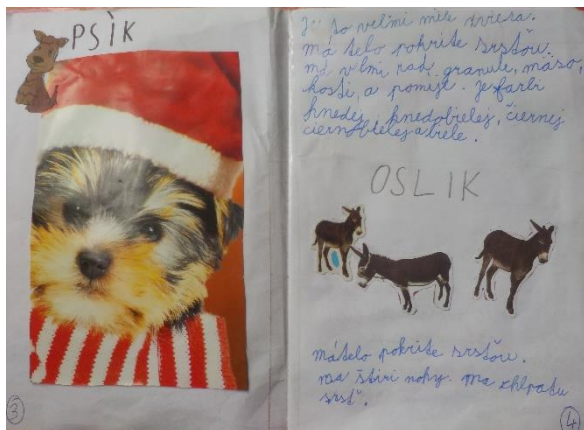 PSÌK
3
Je to velmi mile zviera.
má telo pokrite srsťou.
má velmi rad, granule, mäso,
kosti, a pomije. Je farbi
hnedej, hnedobielej, čiernej
ciernobielej a biele.
OSLIK
má telo pokrite srsťou.
ma štiri nohy. ma chlpatu
srsť.
4